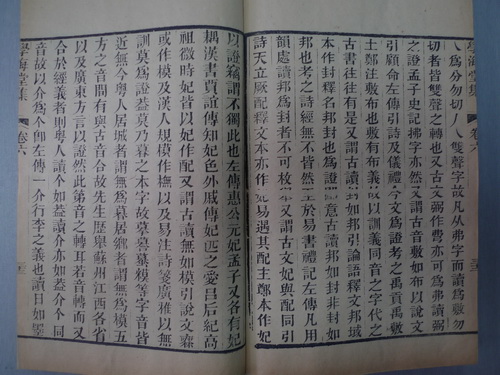 學海堂集 卷六
切者皆雙聲之轉也又古文弼作亦可爲弗讀弼
之證孟子史記拂字亦然又謂古音敷如布以說文
引顧命左傳引詩及儀禮今文爲證考之禹貢禹敷
土鄭注敷布也敷有布義故以訓義同音之字代之
古書往往是又謂古讀邦如封引論語釋文邦域
本作封釋名邦封也古讀邦如封非封如
邦也考之詩經無不皆然至於易書禮記左傳凡用
韻處讀邦爲封者不可枚又謂古文妃與配同引
詩天立厥配釋文本亦作妃易遇其配主鄭本作妃
以證稱謂不獨此也左傳惠公元妃孟子又各有妃
耦漢書賈誼傳知妃色外戚傳妃匹之愛呂后紀高
祖微時妃皆以妃作配又謂古讀無如模引說文橆
或作模及漢人規模作橅以及易注詩箋廣橅以無
訓莫爲證蓋莫乃暮之本字故墓摸模等字音皆
近無今粵人居城者謂無爲慕居鄉者謂無爲模五
方之音間有與古音合故先生歷舉蘇州江西各省
以及廣東方言以證然此第音之轉耳若音轉而又
合於經義者則粵人讀个如葢讀介亦如葢介个同
音故以介爲个卽左傳一介行李之義也讀日如
學海堂集 卷六